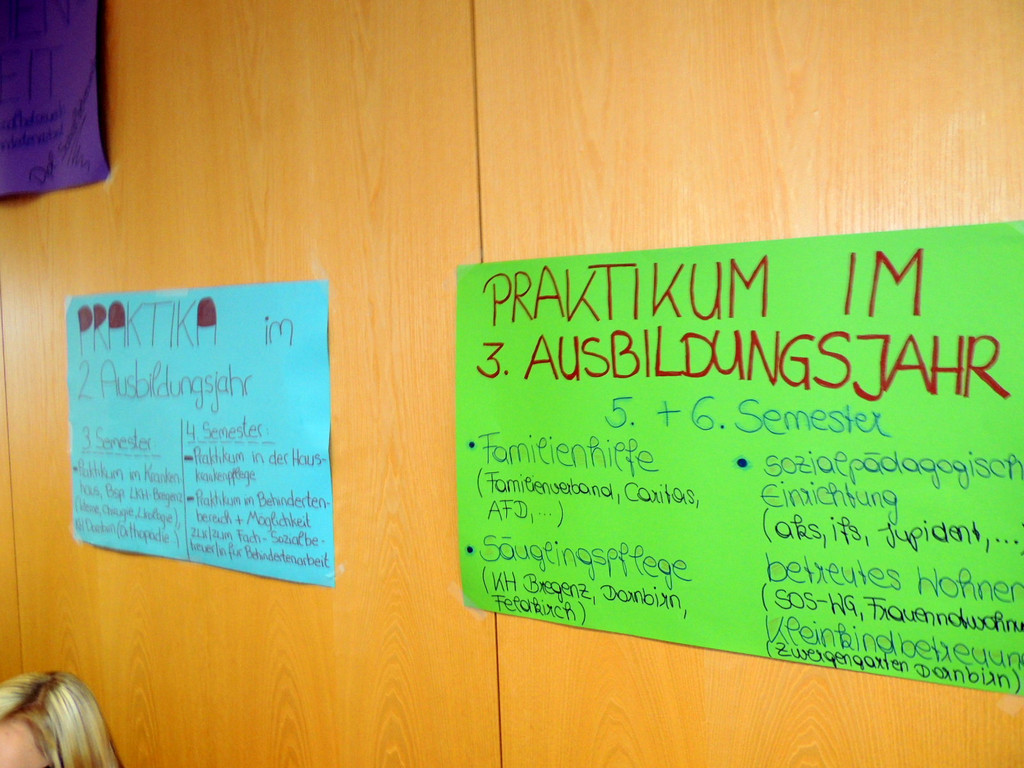 EN
EIT
PRAKTIKA im
2 Ausbildungsjahr
3 Semester:
-Praktikum im Kranken-
haus, Bsp LKH-Bregenz
Chirurgie,
KH Dornbirn (Orthopädie..)
4. Semester:
-Praktikum in der Haus-
krankenpflege
-Praktikum in Behinderten-
bereich + Möglichkeit
zur/zum Fach-Sozialbe-
treuer/in für Behindertenarbeit
PRAKTIKUM IM
3. AUSBILDUNGSJAHR
5. + 6. Semester
• Familienhilfe
(Familienverband, Caritas,
AFD, ...)
• Säuglingspflege
(KH Bregenz, Dornbirn,
Feldkirch)
• sozialpädagogisch
Einrichtung
(aks, ifs, Jupident, ...
betreutes Wohnen
(SOS-WG, Frauennotwohnu
Kleinkindbetreuun
(Zwergengarten Dornbirn)